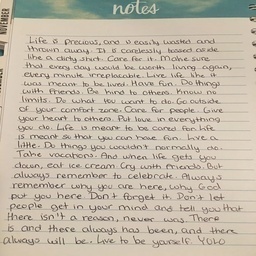 notes
NOVEMBER
Life is precious, and is easily wasted and
thrown away. It is carelessly tossed aside
like a dirty shirt. Care for it. Make sure
that every day would be worth living again,
every minute irreplacable. Live life like it
was meant to be lived. Have fun. Do things
with friends. Be kind to others. Know no
limits. Do what you want to do. Go outside
of your comfort zone. Care for people. Give
your heart to others. Put love in everything
you do. Life is meant to be cared for. Life
is meant so that you can have fun. Live a
little. Do things you wouldn't normally do.
Take vacations. And when life gets you
down, eat ice cream. Cry with friends. But
always remember to celebrate. Always
remember why you are here, why God
put you here. Don't forget it. Don't let
people get in your mind and tell you that
there isn't a reason, never was. There
is and there always has been, and there
always will be. Live to be yourself. YOLO